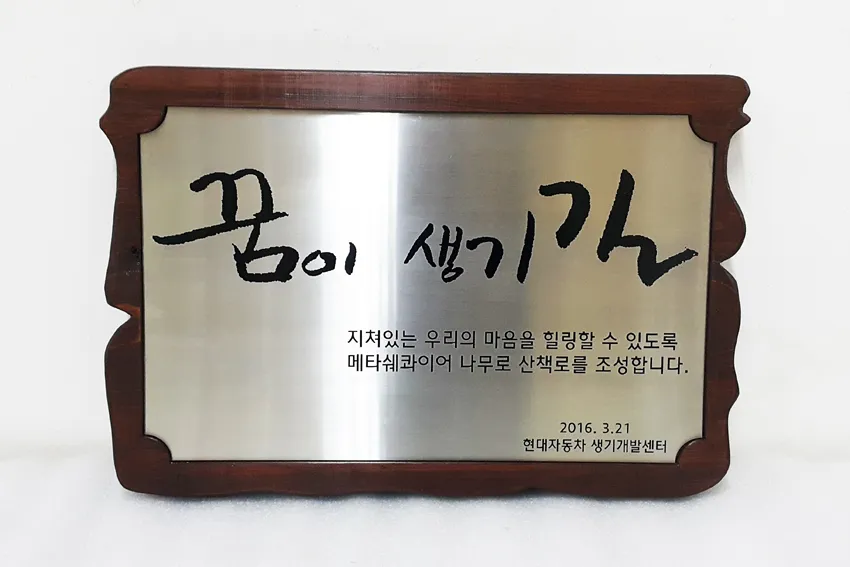 꿈이 생기길
지쳐있는 우리의 마음을 힐링할 수 있도록
메타쉐콰이어 나무로 산책로를 조성합니다.
2016. 3.21
현대자동차 생기개발센터